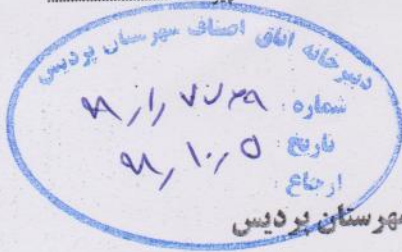 دبیرخانه اتاق اصناف شهرستان پردیس
شماره:
تاریخ: ۹۸/۱۰/۵
ارجاع:
هرستان پردیس